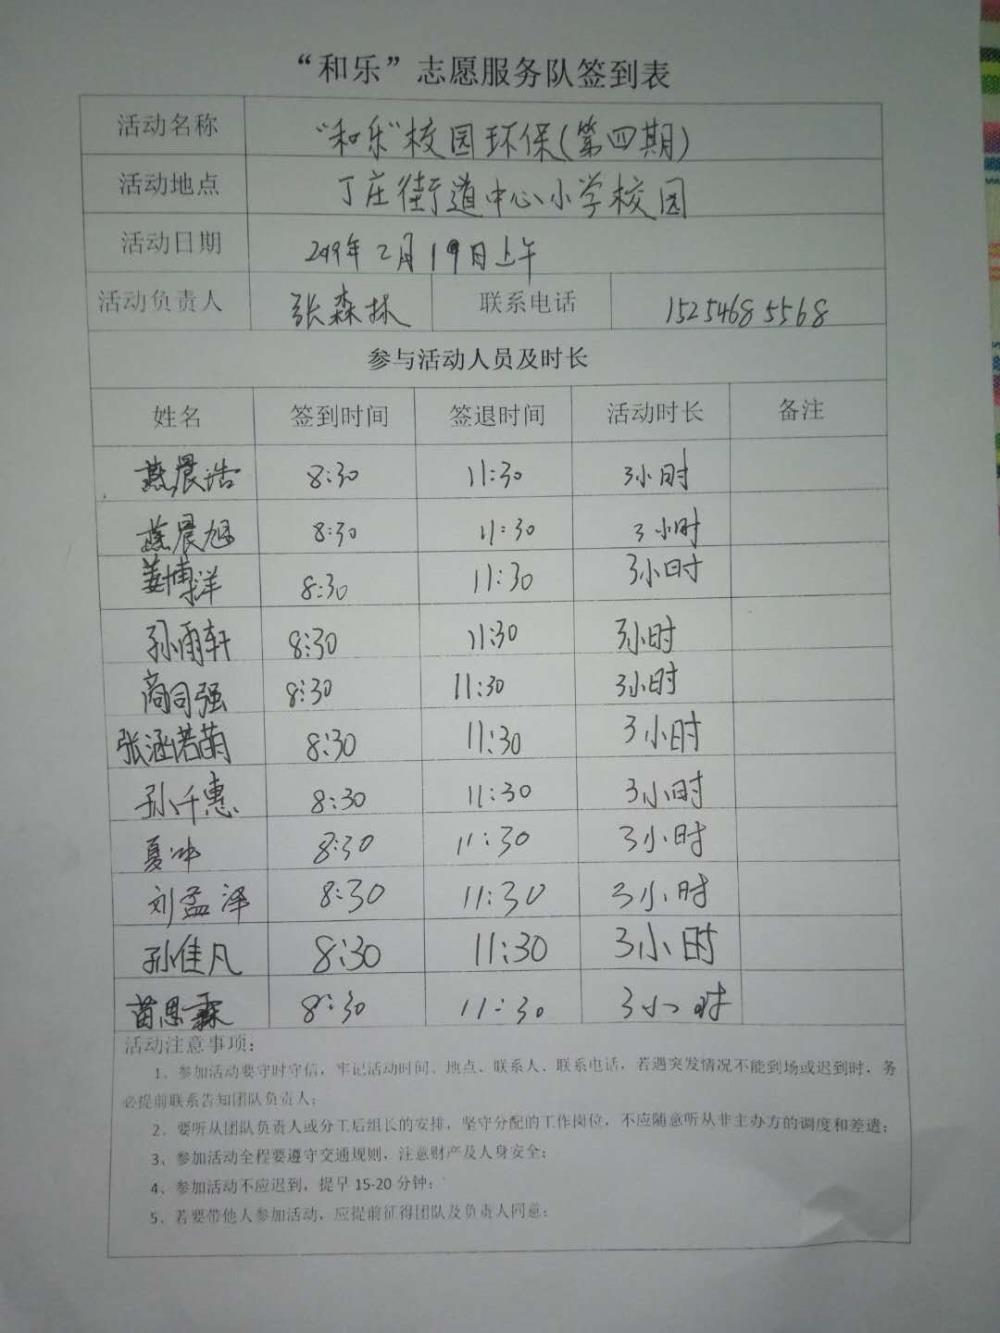 “和乐”志愿服务队签到表
活动名称 “和乐”校园环保(第四期)
活动地点 丁庄街道中心小学校园
活动日期 2019年2月19日上午
活动负责人 张森林 联系电话 15254685568
参与活动人员及时长
姓名 签到时间 签退时间 活动时长 备注
燕晨浩 8:30 11:30 3小时
燕晨旭 8:30 11:30 3小时
姜博洋 8:30 11:30 3小时
孙雨轩 8:30 11:30 3小时
商同强 8:30 11:30 3小时
张涵诺萌 8:30 11:30 3小时
孙千惠 8:30 11:30 3小时
夏冲 8:30 11:30 3小时
刘益泽 8:30 11:30 3小时
孙佳凡 8:30 11:30 3小时
苗思霖 8:30 11:30 3小时
活动注意事项：
1、参加活动要守时守信，牢记活动时间、地点、联系人、联系电话，若遇突发情况不能到场或迟到时，务
必提前联系告知团队负责人；
2、要听从团队负责人或分工后组长的安排，坚守分配的工作岗位，不应随意听从非主办方的调度和差遣；
3、参加活动全程要遵守交通规则，注意财产及人身安全；
4、参加活动不应迟到，提早 15-20 分钟；
5、若要带他人参加活动，应提前征得团队及负责人同意；